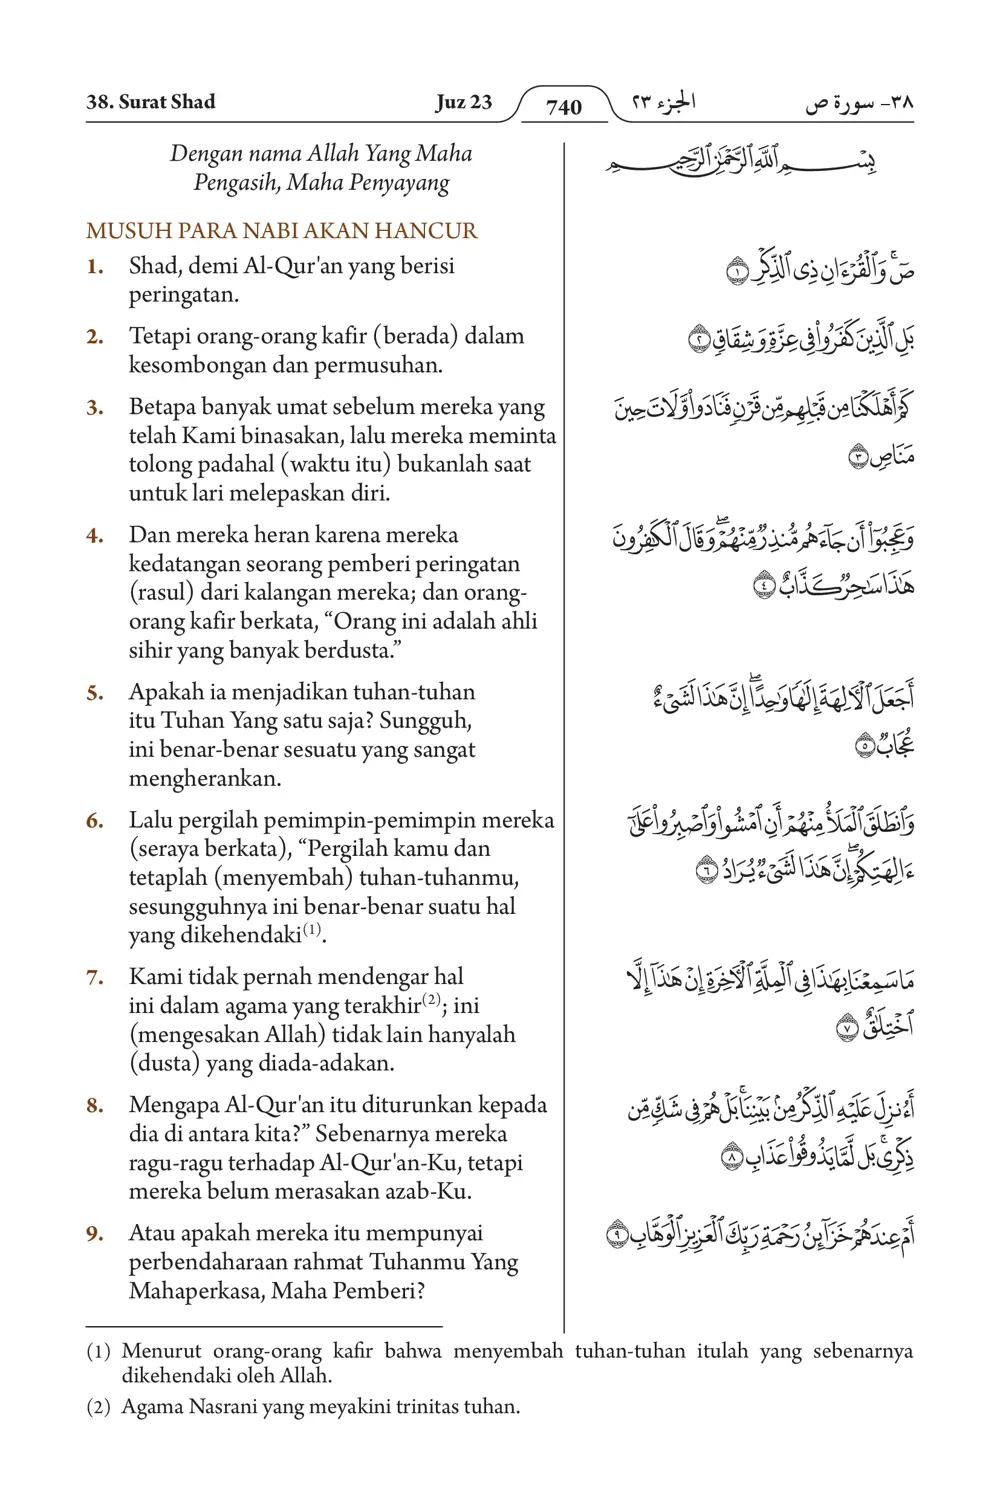 38. Surat Shad
Juz 23
740
الجزء ٢٣
٣٨- سورة ص
Dengan nama Allah Yang Maha
Pengasih, Maha Penyayang
بِسْمِ ٱللَّهِ ٱلرَّحْمَٰنِ ٱلرَّحِيمِ
MUSUH PARA NABI AKAN HANCUR
1. Shad, demi Al-Qur'an yang berisi
peringatan.
صٓ ۚ وَٱلْقُرْءَانِ ذِى ٱلذِّكْرِ ١
2. Tetapi orang-orang kafir (berada) dalam
kesombongan dan permusuhan.
بَلِ ٱلَّذِينَ كَفَرُوا۟ فِى عِزَّةٍ وَشِقَاقٍ ٢
3. Betapa banyak umat sebelum mereka yang
telah Kami binasakan, lalu mereka meminta
tolong padahal (waktu itu) bukanlah saat
untuk lari melepaskan diri.
كَمْ أَهْلَكْنَا مِن قَبْلِهِم مِّن قَرْنٍ فَنَادَوا۟ وَّلَاتَ حِينَ
مَنَاصٍ ٣
4. Dan mereka heran karena mereka
kedatangan seorang pemberi peringatan
(rasul) dari kalangan mereka; dan orang-
orang kafir berkata, “Orang ini adalah ahli
sihir yang banyak berdusta.”
وَعَجِبُوٓا۟ أَن جَآءَهُم مُّنذِرٌ مِّنْهُمْ ۖ وَقَالَ ٱلْكَٰفِرُونَ
هَٰذَا سَٰحِرٌ كَذَّابٌ ٤
5. Apakah ia menjadikan tuhan-tuhan
itu Tuhan Yang satu saja? Sungguh,
ini benar-benar sesuatu yang sangat
mengherankan.
أَجَعَلَ ٱلْءَالِهَةَ إِلَٰهًا وَٰحِدًا ۖ إِنَّ هَٰذَا لَشَىْءٌ
عُجَابٌ ٥
6. Lalu pergilah pemimpin-pemimpin mereka
(seraya berkata), “Pergilah kamu dan
tetaplah (menyembah) tuhan-tuhanmu,
sesungguhnya ini benar-benar suatu hal
yang dikehendaki(1).
وَٱنطَلَقَ ٱلْمَلَأُ مِنْهُمْ أَنِ ٱمْشُوا۟ وَٱصْبِرُوا۟ عَلَىٰٓ
ءَالِهَتِكُمْ ۖ إِنَّ هَٰذَا لَشَىْءٌ يُرَادُ ٦
7. Kami tidak pernah mendengar hal
ini dalam agama yang terakhir(2); ini
(mengesakan Allah) tidak lain hanyalah
(dusta) yang diada-adakan.
مَا سَمِعْنَا بِهَٰذَا فِى ٱلْمِلَّةِ ٱلْءَاخِرَةِ إِنْ هَٰذَآ إِلَّا
ٱخْتِلَٰقٌ ٧
8. Mengapa Al-Qur'an itu diturunkan kepada
dia di antara kita?” Sebenarnya mereka
ragu-ragu terhadap Al-Qur'an-Ku, tetapi
mereka belum merasakan azab-Ku.
أَءُنزِلَ عَلَيْهِ ٱلذِّكْرُ مِنۢ بَيْنِنَا ۚ بَلْ هُمْ فِى شَكٍّ مِّن
ذِكْرِى ۚ بَل لَّمَّا يَذُوقُوا۟ عَذَابِ ٨
9. Atau apakah mereka itu mempunyai
perbendaharaan rahmat Tuhanmu Yang
Mahaperkasa, Maha Pemberi?
أَمْ عِندَهُمْ خَزَآئِنُ رَحْمَةِ رَبِّكَ ٱلْعَزِيزِ ٱلْوَهَّابِ ٩
(1) Menurut orang-orang kafir bahwa menyembah tuhan-tuhan itulah yang sebenarnya
dikehendaki oleh Allah.
(2) Agama Nasrani yang meyakini trinitas tuhan.